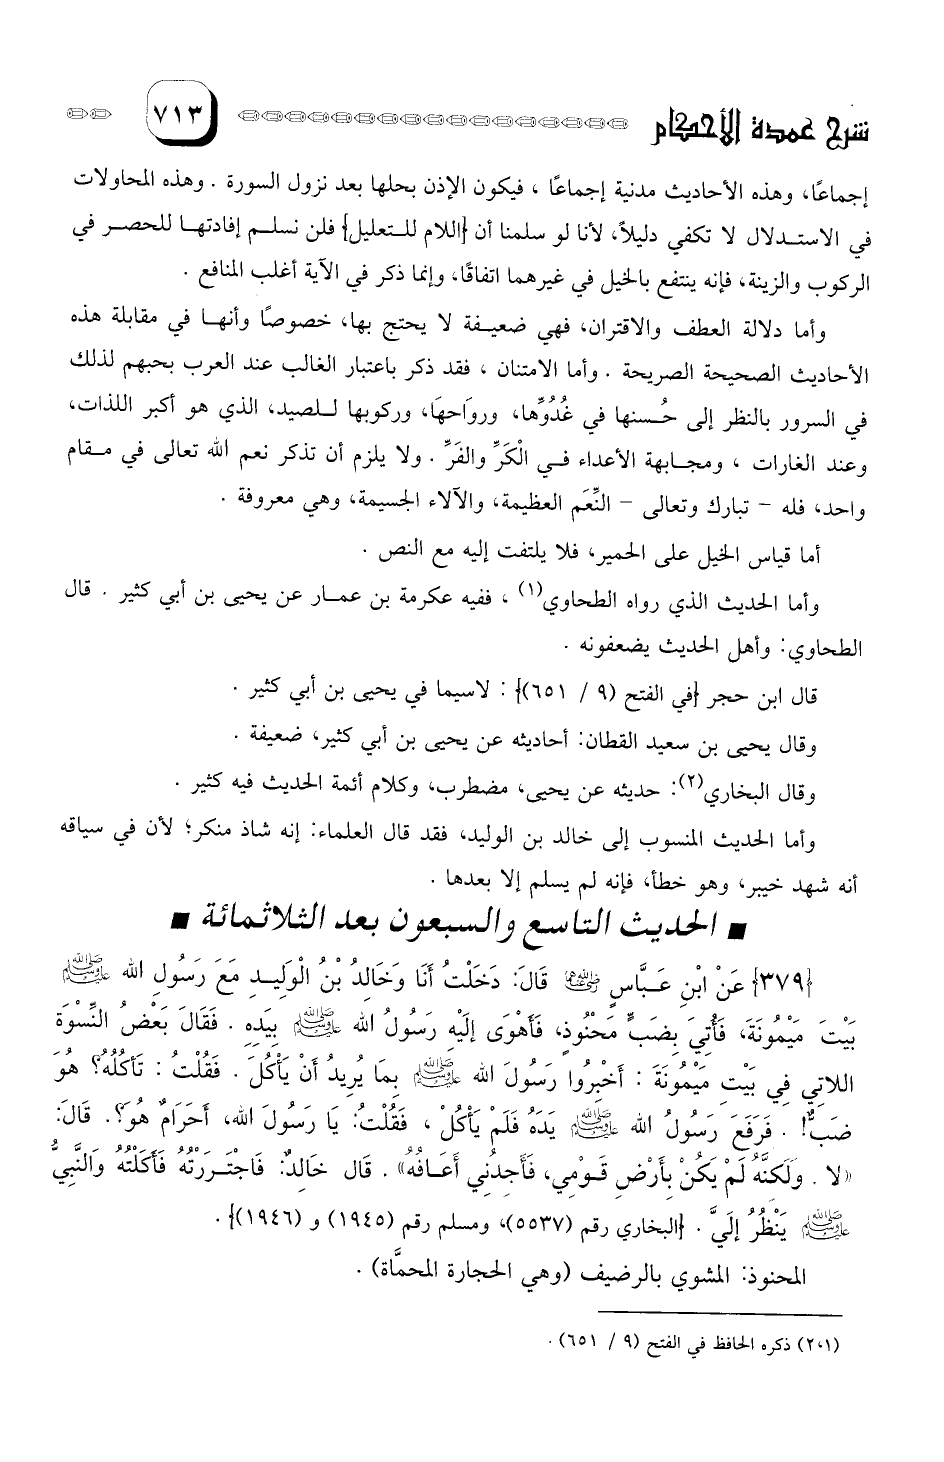 شرح عمدة الأحكام ٧١٣
إجماعًا، وهذه الأحاديث مدنية إجماعًا ، فيكون الإذن بحلها بعد نزول السورة . وهذه المحاولات
في الاستدلال لا تكفي دليلاً، لأنا لو سلمنا أن {اللام للتعليل} فلن نسلم إفادتها للحصر في
الركوب والزينة، فإنه ينتفع بالخيل في غيرهما اتفاقًا، وإنما ذكر في الآية أغلب المنافع .
وأما دلالة العطف والاقتران، فهي ضعيفة لا يحتج بها، خصوصًا وأنها في مقابلة هذه
الأحاديث الصحيحة الصريحة . وأما الامتنان ، فقد ذكر باعتبار الغالب عند العرب بحبهم لذلك
في السرور بالنظر إلى حُسنها في غُدُوِّها، وروَاحهَا، وركوبها للصيد، الذي هو أكبر اللذات،
وعند الغارات ، ومجابهة الأعداء في الْكَرِّ والفَرِّ . ولا يلزم أن تذكر نعم الله تعالى في مقام
واحد، فله – تبارك وتعالى – النِّعَم العظيمة، والآلاء الجسيمة، وهي معروفة .
أما قياس الخيل على الحمير، فلا يلتفت إليه مع النص .
وأما الحديث الذي رواه الطحاوي(١) ، ففيه عكرمة بن عمار عن يحيى بن أبي كثير . قال
الطحاوي: وأهل الحديث يضعفونه .
قال ابن حجر {في الفتح (٩ / ٦٥١)} : لاسيما في يحيى بن أبي كثير .
وقال يحيى بن سعيد القطان: أحاديثه عن يحيى بن أبي كثير، ضعيفة .
وقال البخاري(٢): حديثه عن يحيى، مضطرب، وكلام أئمة الحديث فيه كثير .
وأما الحديث المنسوب إلى خالد بن الوليد، فقد قال العلماء: إنه شاذ منكر؛ لأن في سياقه
أنه شهد خيبر، وهو خطأ، فإنه لم يسلم إلا بعدها .
■ الحديث التاسع والسبعون بعد الثلاثمائة ■
{٣٧٩} عَنْ ابْنِ عَبَّاسٍ رضي الله عنهما قَالَ: دَخَلْتُ أَنَا وَخَالدُ بْنُ الْوَلِيد مَعَ رَسُولِ الله ﷺ
بَيْتَ مَيْمُونَةَ، فَأُتِيَ بِضَبٍّ مَحْنُوذٍ، فَأَهْوَى إلَيْهِ رَسُولُ الله ﷺ بِيَدِهِ . فَقَالَ بَعْضُ النِّسْوَةِ
اللاتِي فِي بَيْتِ مَيْمُونَةَ : أَخْبِرُوا رَسُولَ الله ﷺ بِمَا يُرِيدُ أَنْ يَأْكُلَ . فَقُلْتُ : تَأكُلُهُ؟ هُوَ
ضَبٌّ! . فَرَفَعَ رَسُولُ الله ﷺ يَدَهُ فَلَمْ يَأكُلْ ، فَقُلْتُ: يَا رَسُولَ الله، أَحَرَامٌ هُوَ؟. قَالَ:
«لا . وَلَكِنَّهُ لَمْ يَكُنْ بِأَرْضِ قَوْمِي، فَأَجِدُنِي أَعَافُهُ» . قال خَالدٌ: فَاجْتَرَرْتُهُ فَأَكَلْتُهُ وَالنَّبِيُّ
ﷺ يَنْظُرُ إلَيَّ . {البخاري رقم (٥٥٣٧)، ومسلم رقم (١٩٤٥) و (١٩٤٦)}.
المحنوذ: المشوي بالرضيف (وهي الحجارة المحمَّاة) .
(٢،١) ذكره الحافظ في الفتح (٩ / ٦٥١) .